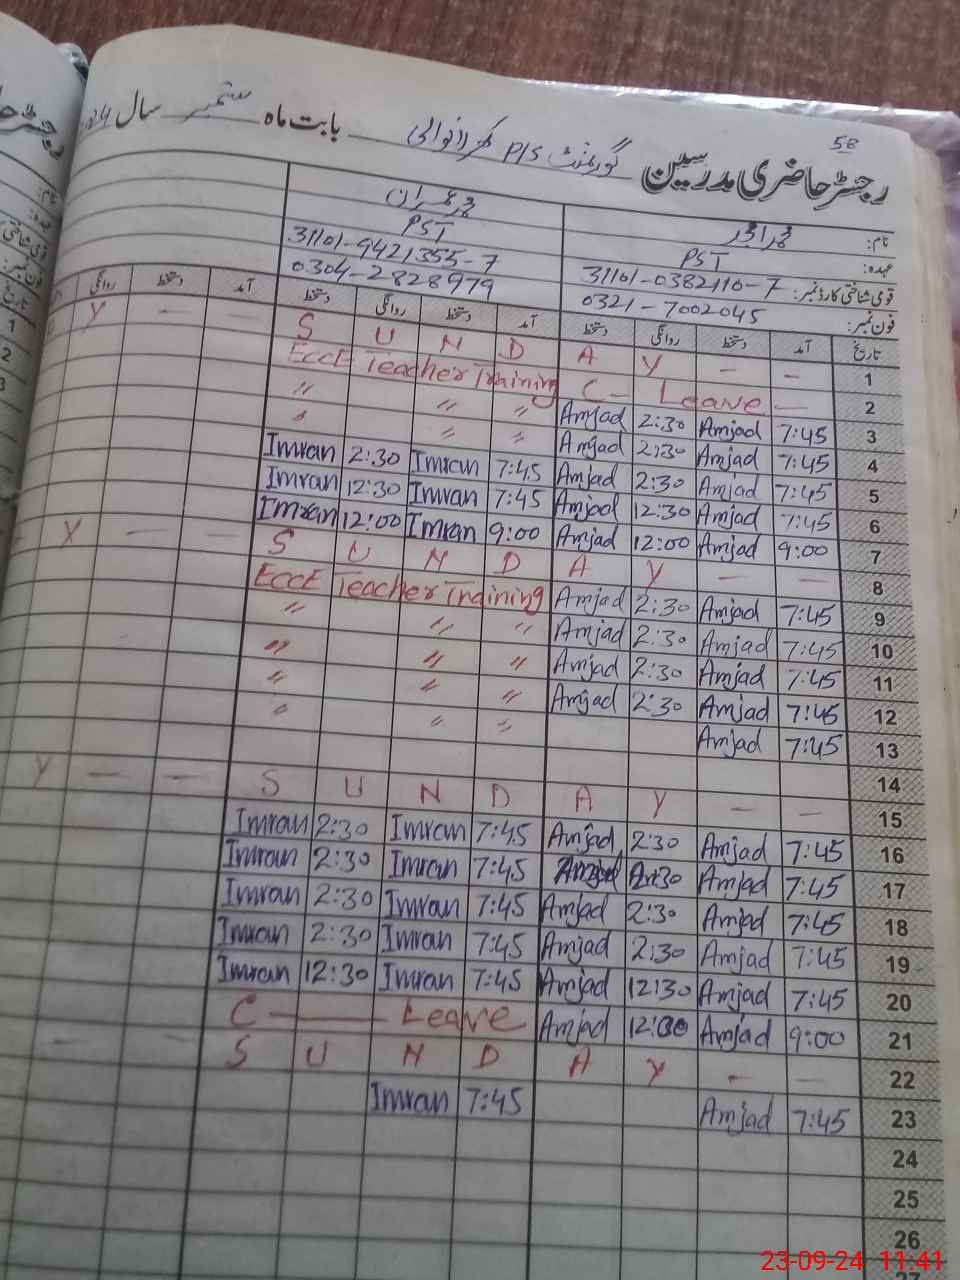 58
رجسٹر حاضری مدرسین گورنمنٹ P/S بابت ماہ ستمبر سال
نام: محمد امجد محمد عمران
عہدہ: PST PST
قومی شناختی کارڈ نمبر: 31101-0382110-7 31101-9421355-7
فون نمبر: 0321-7002045 0304-2828979
تاریخ آمد دستخط روانگی دستخط آمد دستخط روانگی دستخط آمد دستخط روانگی
Y — — S U N D A Y — — 1
EccE Teacher Training C- Leave — 2
" " " Amjad 2:30 Amjad 7:45 3
" " " Amjad 2:30 Amjad 7:45 4
Imran 2:30 Imran 7:45 Amjad 2:30 Amjad 7:45 5
Imran 12:30 Imran 7:45 Amjad 12:30 Amjad 7:45 6
Imran 12:00 Imran 9:00 Amjad 12:00 Amjad 9:00 7
Y — — S U N D A Y — — 8
EccE Teacher Training Amjad 2:30 Amjad 7:45 9
" " " Amjad 2:30 Amjad 7:45 10
" " " Amjad 2:30 Amjad 7:45 11
" " " Amjad 2:30 Amjad 7:45 12
" " " Amjad 7:45 13
14
Y — — S U N D A Y — — 15
Imran 2:30 Imran 7:45 Amjad 2:30 Amjad 7:45 16
Imran 2:30 Imran 7:45 Amjad 2:30 Amjad 7:45 17
Imran 2:30 Imran 7:45 Amjad 2:30 Amjad 7:45 18
Imran 2:30 Imran 7:45 Amjad 2:30 Amjad 7:45 19
Imran 12:30 Imran 7:45 Amjad 12:30 Amjad 7:45 20
C — Leave Amjad 12:00 Amjad 9:00 21
— — S U N D A Y — — 22
Imran 7:45 Amjad 7:45 23
24
25
26
27
رجسٹر
نام:
عہدہ:
قومی شناختی
فون نمبر:
تاریخ
1
2
3
23-09-24 11:41